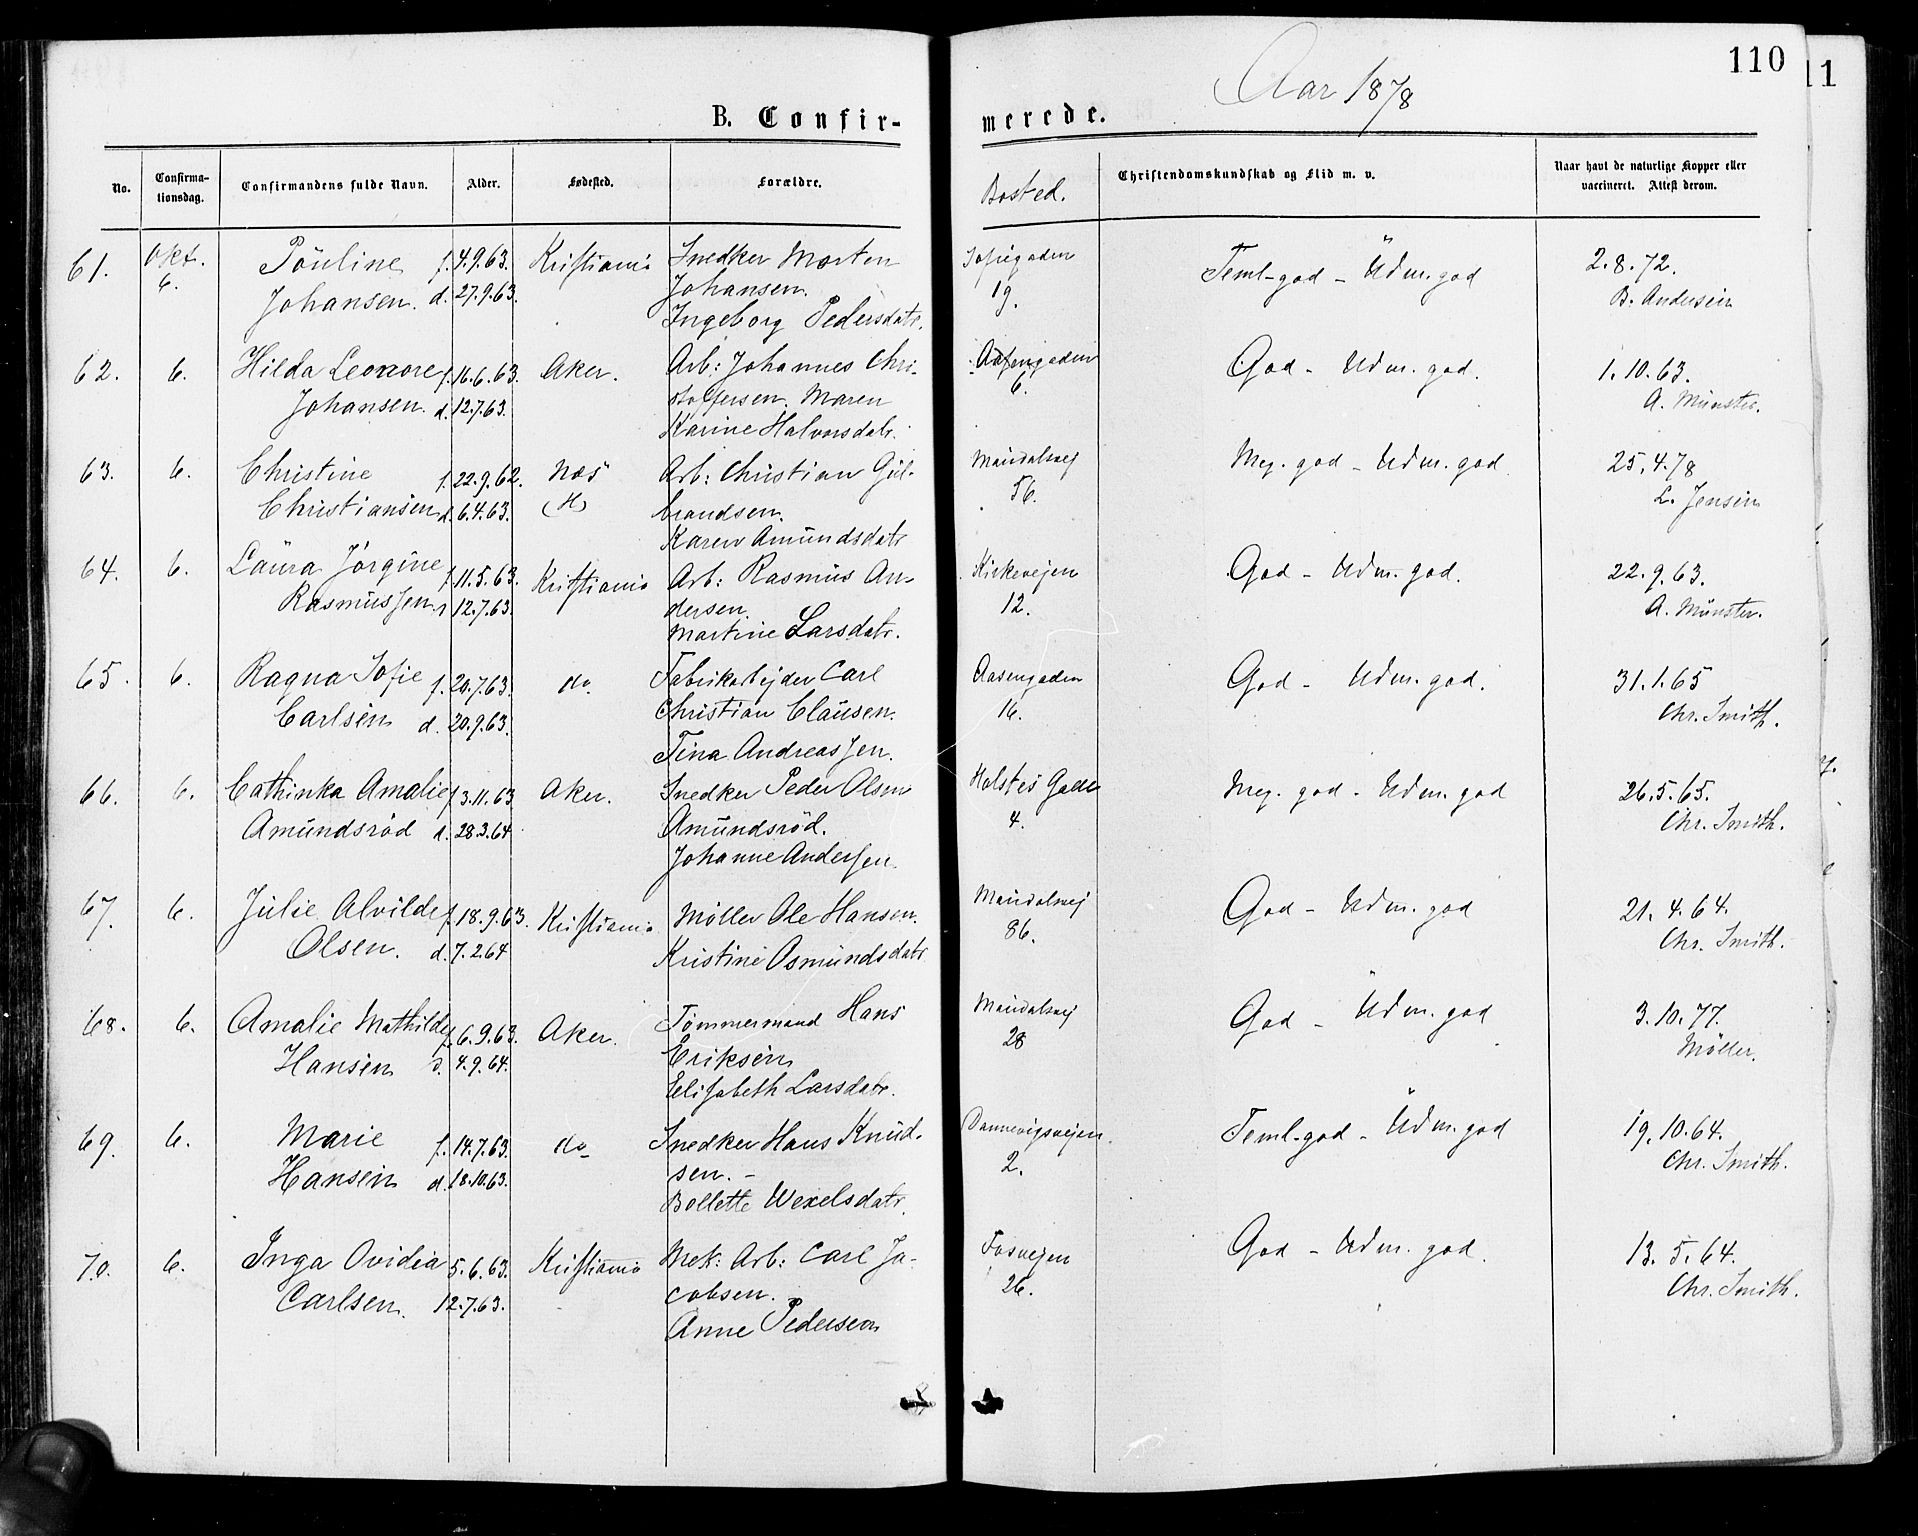 110
11
Aar 1878
B. Confir-
merede.
No.
Confirma-
tionsdag.
Confirmandens fulde Navn.
Alder.
Fødested.
Forældre.
Bosted.
Christendomskundskab og Flid m. v.
Naar havt de naturlige Kopper eller
vaccineret. Attest derom.
61. Okt. Pouline f. 4.9.63. Kristiania Snedker Morten Sofiegaden Teml-god - Udm. god 2.8.72.
6. Johansen. d. 27.9.63. Johansen. 19. B. Andersen
Ingeborg Pedersdatr.
62. 6. Hilda Leonore f. 16.6.63. Aker. Arb: Johannes Chri- Aasengaden God - Udm. god. 1.10.63.
Johansen. d. 12.7.63. stoffersen. Maren 6. A. Münster.
Karine Halvorsdatr.
63. 6. Christine f. 22.9.62. Næs Arb: Christian Gul- Maridalsvej Meg. god - Udm. god 25.4.78
Christiansen d. 6.4.63. (H) brandsen. 56. L. Jensen
Karen Amundsdatr
64. 6. Laura Jørgine f. 11.5.63. Kristiania Arb: Rasmus An- Kirkevejen God - Udm. god. 22.9.63.
Rasmussen d. 12.7.63. dersen. 12. A. Münster.
Martine Larsdatr.
65. 6. Ragna Sofie f. 20.7.63. do. Fabrikarbejder Carl Aasengaden God - Udm. god. 31.1.65
Carlsen d. 20.9.63. Christian Clausen. 16. Chr. Smith.
Tina Andreassen.
66. 6. Cathinka Amalie f. 3.11.63 Aker. Snedker Peder Olsen Holstes Gade Meg. god - Udm. god 26.5.65.
Amundsrød d. 28.3.64 Amundsrød. 4. Chr. Smith.
Johanne Andersen.
67. 6. Julie Alvilde f. 18.9.63. Kristiania Møller Ole Hansen. Maridalsvej God - Udm. god 21.4.64.
Olsen. d. 7.2.64 Kristine Osmundsdatr 86. Chr. Smith.
68. 6. Amalie Mathilde f. 6.9.63. Aker. Tømmermand Hans Maridalsvej God - Udm. god 3.10.77.
Hansen d. 4.9.64. Eriksen 28 Möller.
Elisabeth Larsdatr.
69. 6. Marie f. 14.7.63. do Snedker Hans Knud- Dannevigsvejen. Teml-god - Udm. god 19.10.64.
Hansen d. 18.10.63. sen. - 2. Chr. Smith.
Bollette Wexelsdatr.
70. 6. Inga Ovidia 5.6.63. Kristiania Mek: Arb: Carl Ja- Fosvejen God - Udm. god. 13.5.64.
Carlsen. 12.7.63. cobsen. 26. Chr. Smith.
Anne Pedersen